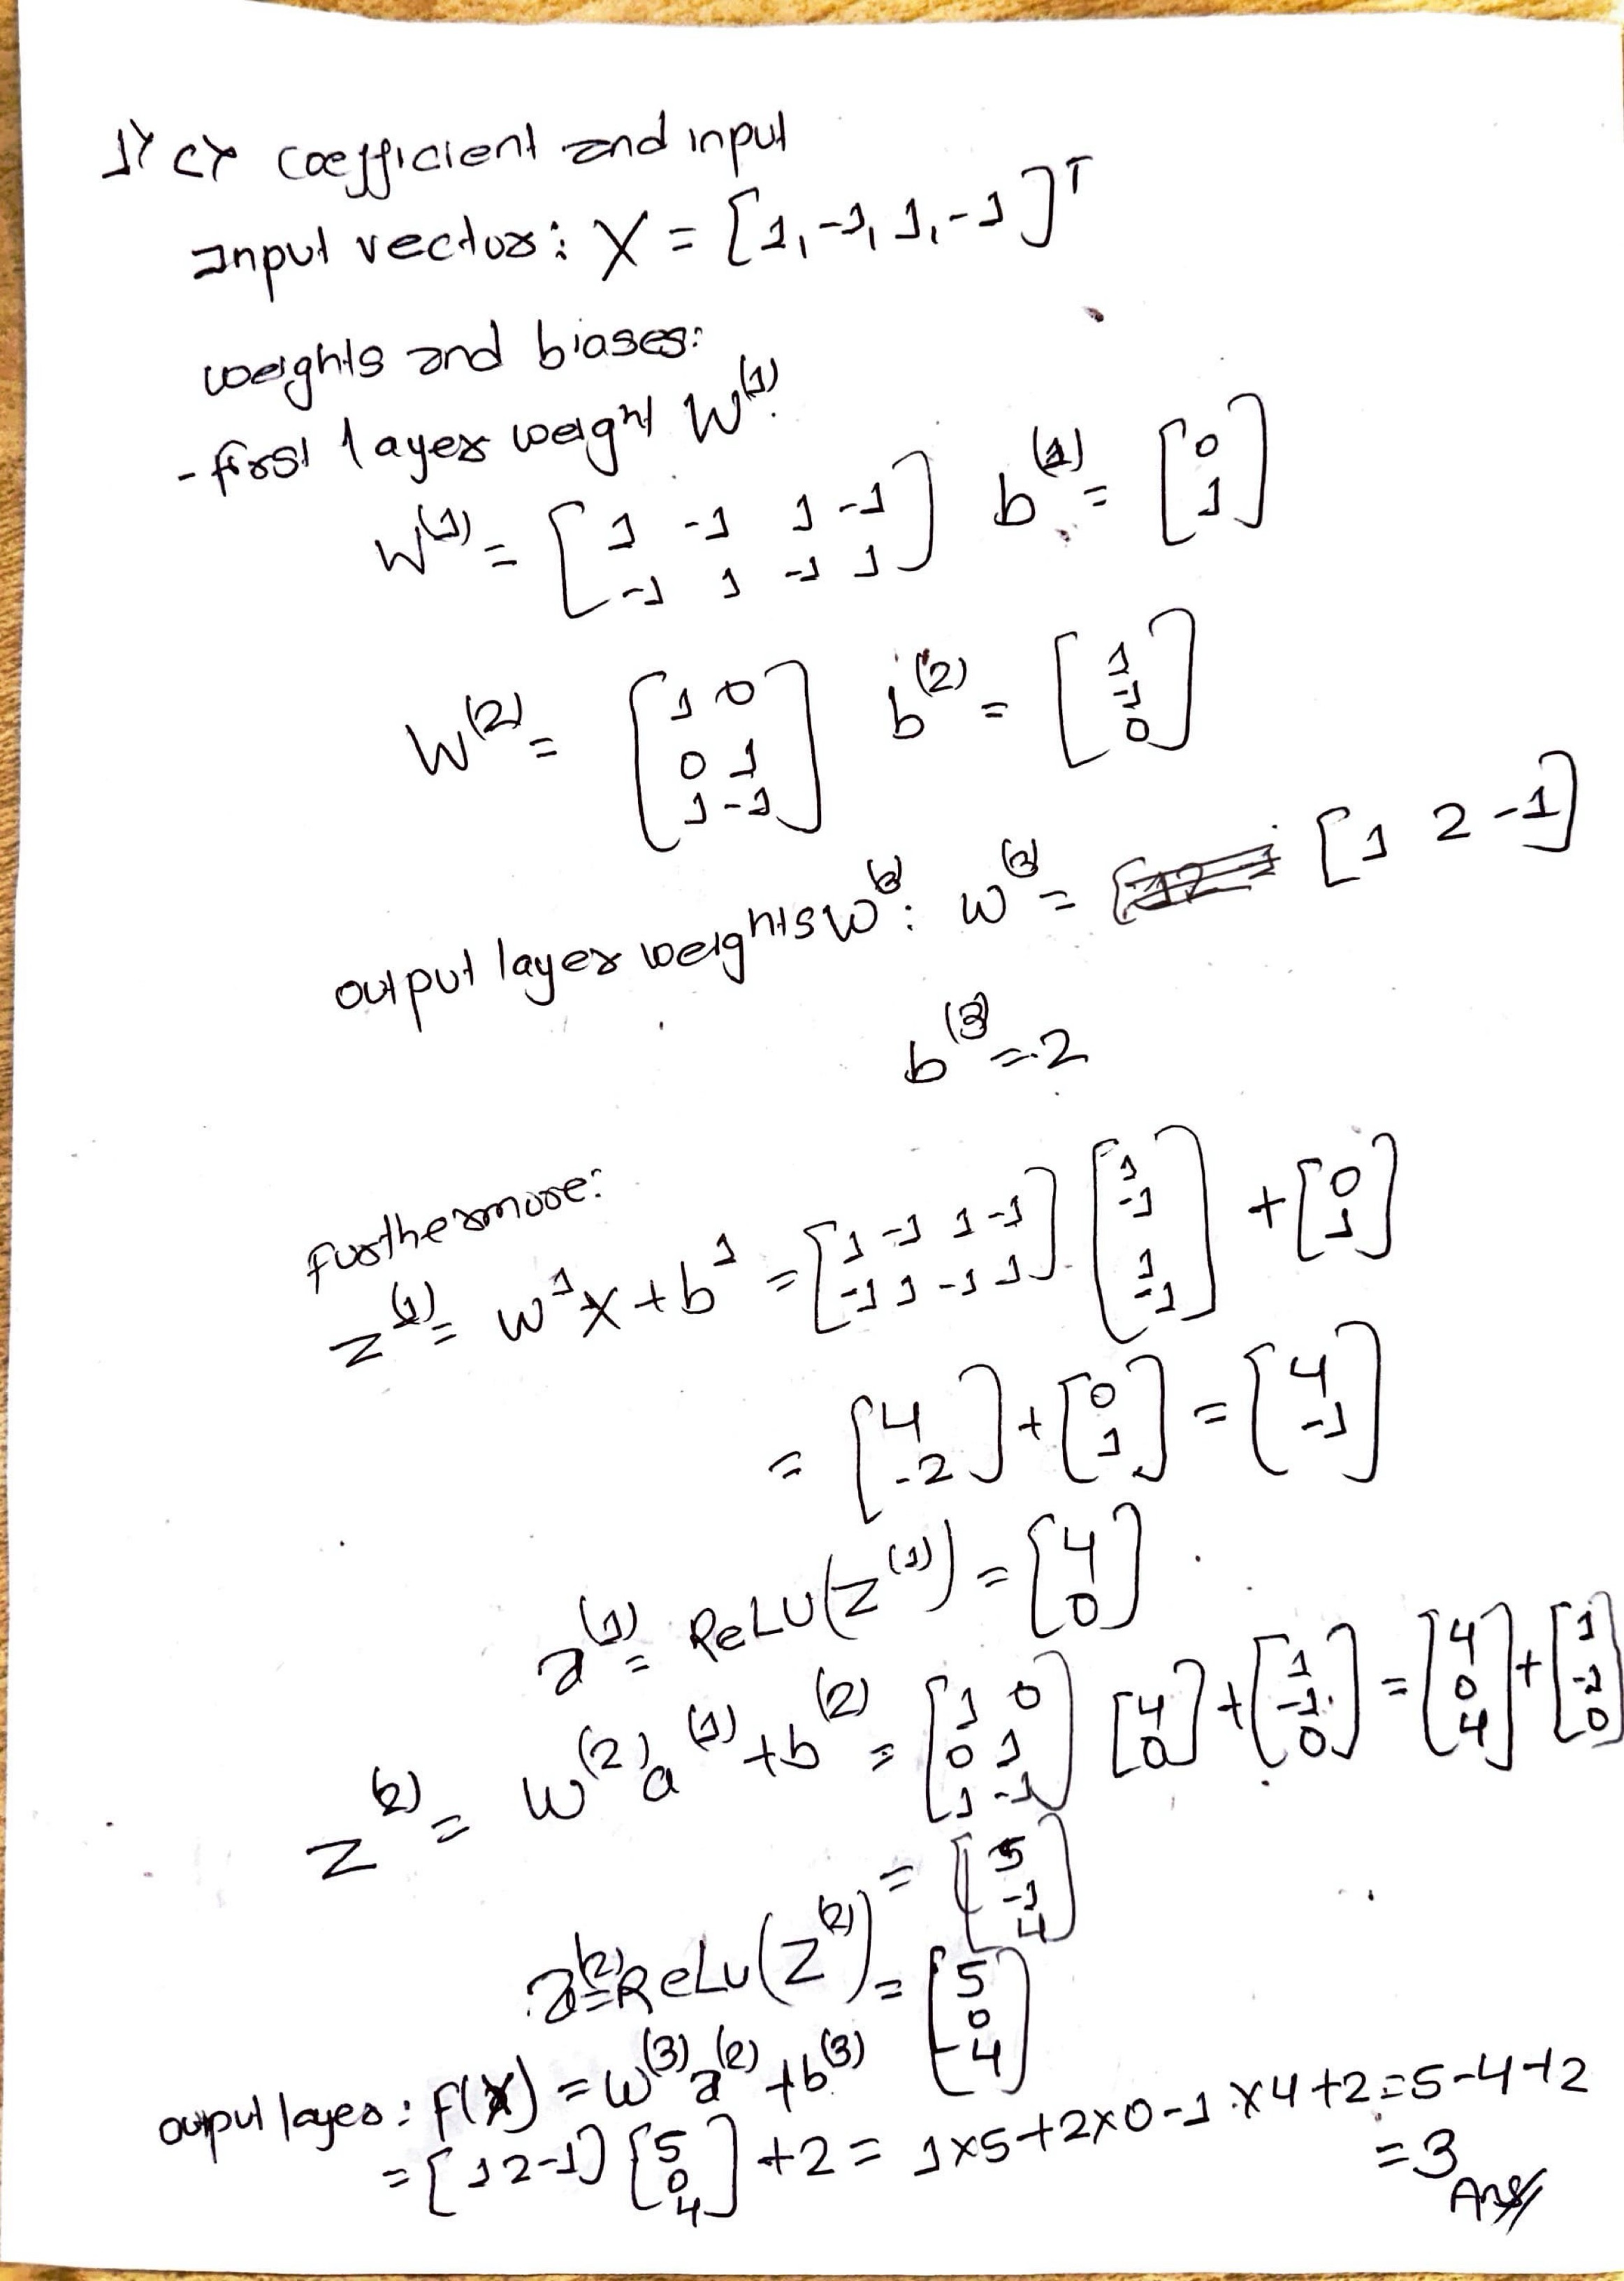 1) c) Coefficient and input
Input vector: X = [1, -1, 1, -1]ᵀ
weights and biases:
- first layer weight W⁽¹⁾:
W⁽¹⁾ = [1 -1 1 -1; -1 1 -1 1] b⁽¹⁾ = [0; 1]
W⁽²⁾ = [1 0; 0 1; 1 -1] b⁽²⁾ = [1; -1; 0]
output layer weights W⁽³⁾: W⁽³⁾ = [1 2 -1]
b⁽³⁾ = 2
furthermore:
z⁽¹⁾ = w¹x + b¹ = [1 -1 1 -1; -1 1 -1 1] · [1; -1; 1; -1] + [0; 1]
= [4; -2] + [0; 1] = [4; -1]
a⁽¹⁾ = ReLU(z⁽¹⁾) = [4; 0]
z⁽²⁾ = w⁽²⁾a⁽¹⁾ + b⁽²⁾ = [1 0; 0 1; 1 -1] [4; 0] + [1; -1; 0] = [4; 0; 4] + [1; -1; 0]
= [5; -1; 4]
a⁽²⁾ = ReLu(z⁽²⁾) = [5; 0; 4]
output layer: F(X) = w⁽³⁾a⁽²⁾ + b⁽³⁾
= [1 2 -1] [5; 0; 4] + 2 = 1×5+2×0-1×4+2 = 5-4+2
= 3 Ans//